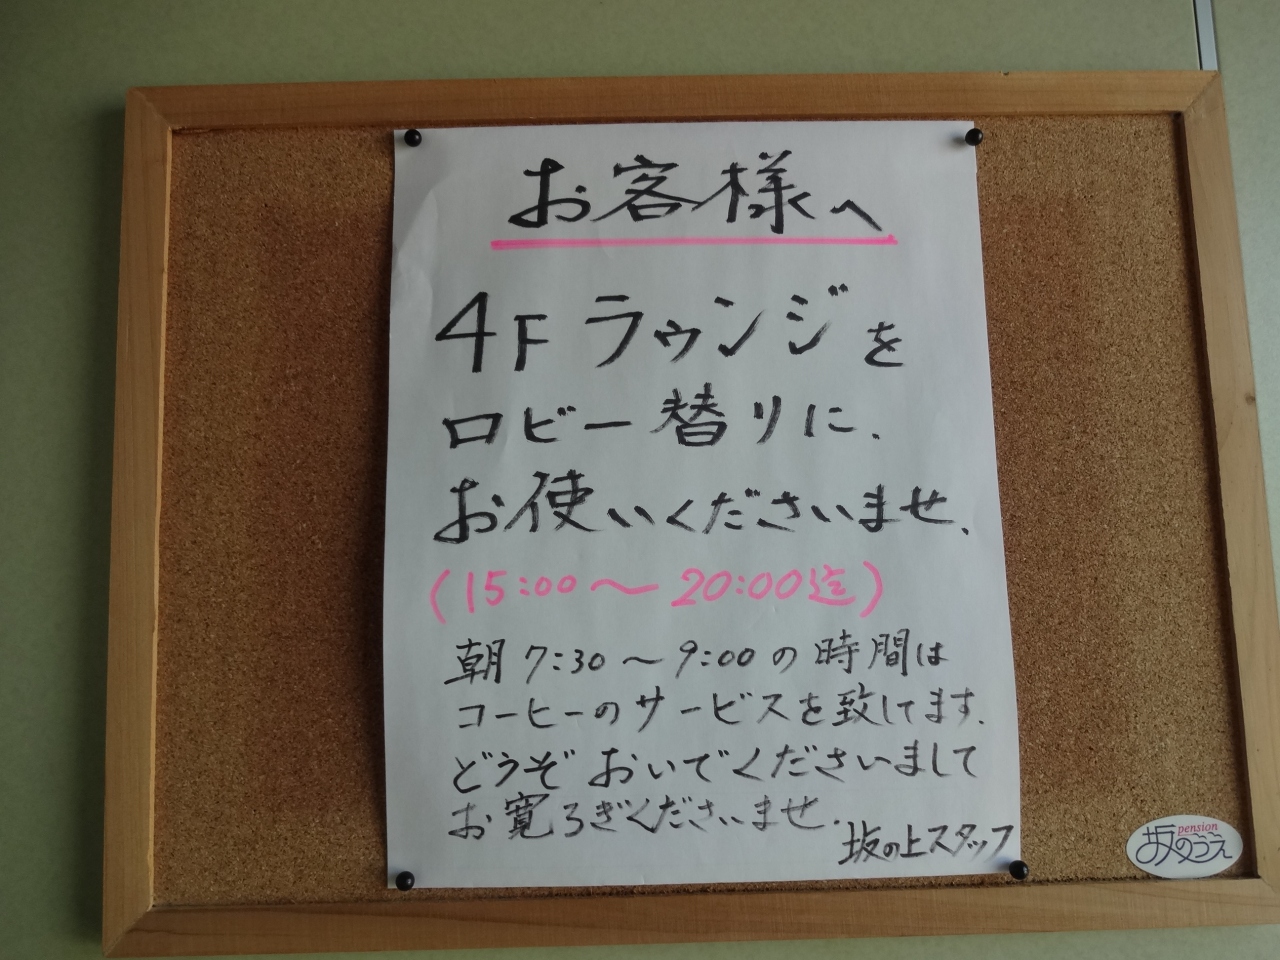 お客様へ
4Fラウンジを
ロビー替りに、
お使いくださいませ、
(15:00〜20:00迄)
朝7:30〜9:00の時間は
コーヒーのサービスを致してます.
どうぞおいでくださいまして
お寛ろぎくださいませ.
坂の上スタッフ
pension
坂のうえ